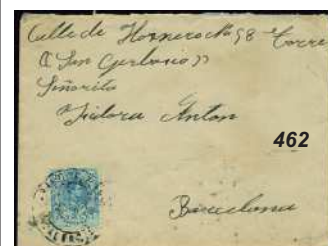 Calle de Hornero No 98 - Torre
"San Gerbacio"
Señorita
Isidora Anton
462
Barcelona